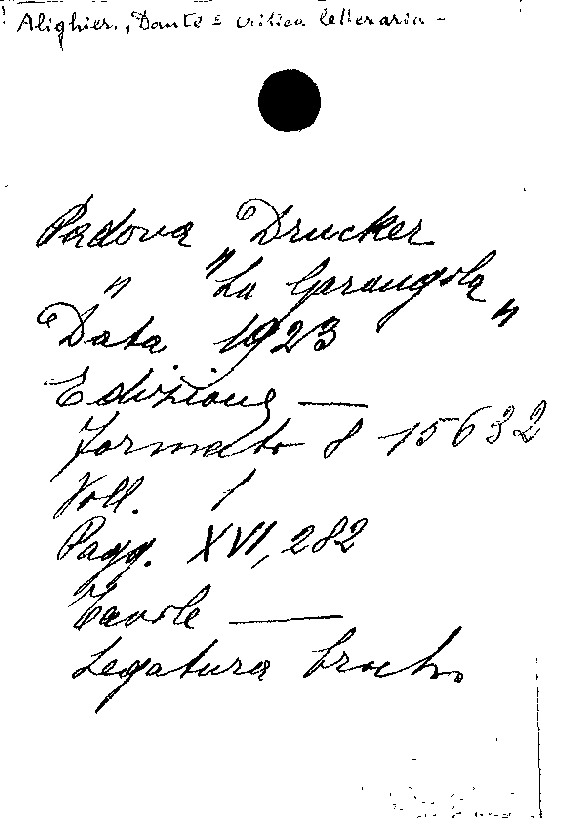 Alighieri, Dante = critica letteraria -
Padova Drucker
" "La Garangola"
Data 1923
Edizione —
Formato 8 15632
Voll. 1
Pagg. XVI, 282
Tavole —
Legatura broch.